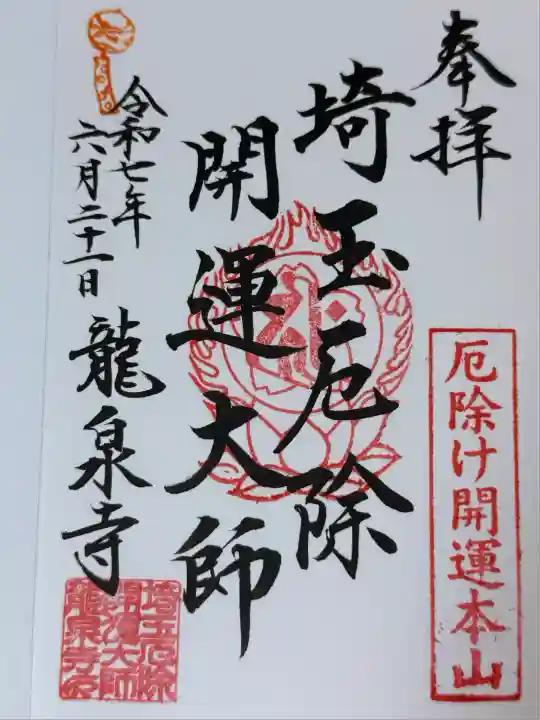 奉拝
厄除け開運本山
埼玉厄除
開運大師
令和七年
六月二十一日
龍泉寺
埼玉厄除
開運大師
龍泉寺之